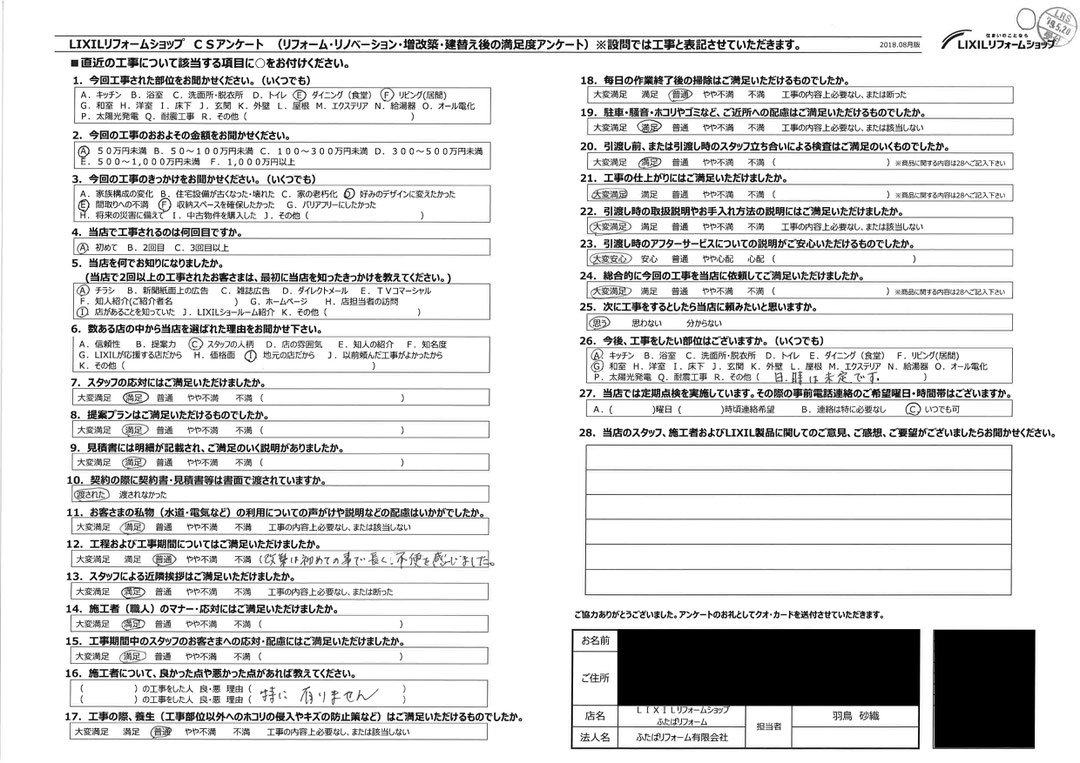 LIXILリフォームショップ CSアンケート (リフォーム・リノベーション・増改築・建替え後の満足度アンケート)※設問では工事と表記させていただきます。
2018.08月版
住まいのことなら
LIXILリフォームショップ
LRS
'19.5.20
■直近の工事について該当する項目に○をお付けください。
1. 今回工事された部位をお聞かせください。(いくつでも)
A. キッチン B. 浴室 C. 洗面所・脱衣所 D. トイレ E. ダイニング(食堂) F. リビング(居間)
G. 和室 H. 洋室 I. 床下 J. 玄関 K. 外壁 L. 屋根 M. エクステリア N. 給湯器 O. オール電化
P. 太陽光発電 Q. 耐震工事 R. その他( )
2. 今回の工事のおおよその金額をお聞かせください。
A. 50万円未満 B. 50~100万円未満 C. 100~300万円未満 D. 300~500万円未満
E. 500~1,000万円未満 F. 1,000万円以上
3. 今回の工事のきっかけをお聞かせください。(いくつでも)
A. 家族構成の変化 B. 住宅設備が古くなった・壊れた C. 家の老朽化 D. 好みのデザインに変えたかった
E. 間取りへの不満 F. 収納スペースを確保したかった G. バリアフリーにしたかった
H. 将来の災害に備えて I. 中古物件を購入した J. その他( )
4. 当店で工事されるのは何回目ですか。
A. 初めて B. 2回目 C. 3回目以上
5. 当店を何でお知りになりましたか。
(当店で2回以上の工事されたお客さまは、最初に当店を知ったきっかけを教えてください。)
A. チラシ B. 新聞紙面上の広告 C. 雑誌広告 D. ダイレクトメール E. TVコマーシャル
F. 知人紹介(ご紹介者名 ) G. ホームページ H. 店担当者の訪問
I. 店があることを知っていた J. LIXILショールーム紹介 K. その他( )
6. 数ある店の中から当店を選ばれた理由をお聞かせ下さい。
A. 信頼性 B. 提案力 C. スタッフの人柄 D. 店の雰囲気 E. 知人の紹介 F. 知名度
G. LIXILが応援する店だから H. 価格面 I. 地元の店だから J. 以前頼んだ工事がよかったから
K. その他( )
7. スタッフの応対にはご満足いただけましたか。
大変満足 満足 普通 やや不満 不満( )
8. 提案プランはご満足いただけるものでしたか。
大変満足 満足 普通 やや不満 不満( )
9. 見積書には明細が記載され、ご満足のいく説明がありましたか。
大変満足 満足 普通 やや不満 不満( )
10. 契約の際に契約書・見積書等は書面で渡されていますか。
渡された 渡されなかった
11. お客さまの私物(水道・電気など)の利用についての声がけや説明などの配慮はいかがでしたか。
大変満足 満足 普通 やや不満 不満 工事の内容上必要なし、または該当しない
12. 工程および工事期間についてはご満足いただけましたか。
大変満足 満足 普通 やや不満 不満(改築は初めての事で長く、不便を感じました。
13. スタッフによる近隣挨拶はご満足いただけましたか。
大変満足 満足 普通 やや不満 不満 工事の内容上必要なし、または断った
14. 施工者(職人)のマナー・応対にはご満足いただけましたか。
大変満足 満足 普通 やや不満 不満( )
15. 工事期間中のスタッフのお客さまへの応対・配慮にはご満足いただけましたか。
大変満足 満足 普通 やや不満 不満( )
16. 施工者について、良かった点や悪かった点があれば教えてください。
( )の工事をした人 良・悪 理由( 特に 有りません )
( )の工事をした人 良・悪 理由( )
17. 工事の際、養生(工事部位以外へのホコリの侵入やキズの防止策など)はご満足いただけるものでしたか。
大変満足 満足 普通 やや不満 不満 工事の内容上必要なし、または該当しない
18. 毎日の作業終了後の掃除はご満足いただけるものでしたか。
大変満足 満足 普通 やや不満 不満 工事の内容上必要なし、または断った
19. 駐車・騒音・ホコリやゴミなど、ご近所への配慮はご満足いただけるものでしたか。
大変満足 満足 普通 やや不満 不満 工事の内容上必要なし、または該当しない
20. 引渡し前、または引渡し時のスタッフ立ち合いによる検査はご満足のいくものでしたか。
大変満足 満足 普通 やや不満 不満( ) ※商品に関する内容は28へご記入下さい
21. 工事の仕上がりにはご満足いただけましたか。
大変満足 満足 普通 やや不満 不満( ) ※商品に関する内容は28へご記入下さい
22. 引渡し時の取扱説明やお手入れ方法の説明にはご満足いただけましたか。
大変満足 満足 普通 やや不満 不満 工事の内容上必要なし、または該当しない
23. 引渡し時のアフターサービスについての説明がご安心いただけるものでしたか。
大変安心 安心 普通 やや心配 心配( )
24. 総合的に今回の工事を当店に依頼してご満足いただけましたか。
大変満足 満足 普通 やや不満 不満( ) ※商品に関する内容は28へご記入下さい
25. 次に工事をするとしたら当店に頼みたいと思いますか。
思う 思わない 分からない
26. 今後、工事をしたい部位はございますか。(いくつでも)
A. キッチン B. 浴室 C. 洗面所・脱衣所 D. トイレ E. ダイニング(食堂) F. リビング(居間)
G. 和室 H. 洋室 I. 床下 J. 玄関 K. 外壁 L. 屋根 M. エクステリア N. 給湯器 O. オール電化
P. 太陽光発電 Q. 耐震工事 R. その他( 日.時は未定です. )
27. 当店では定期点検を実施しています。その際の事前電話連絡のご希望曜日・時間帯はございますか。
A. ( )曜日( )時頃連絡希望 B. 連絡は特に必要なし C. いつでも可
28. 当店のスタッフ、施工者およびLIXIL製品に関してのご意見、ご感想、ご要望がございましたらお聞かせください。
ご協力ありがとうございました。アンケートのお礼としてクオ・カードを送付させていただきます。
お名前
ご住所
店名
LIXILリフォームショップ
ふたばリフォーム
担当者
羽鳥 砂織
法人名
ふたばリフォーム有限会社